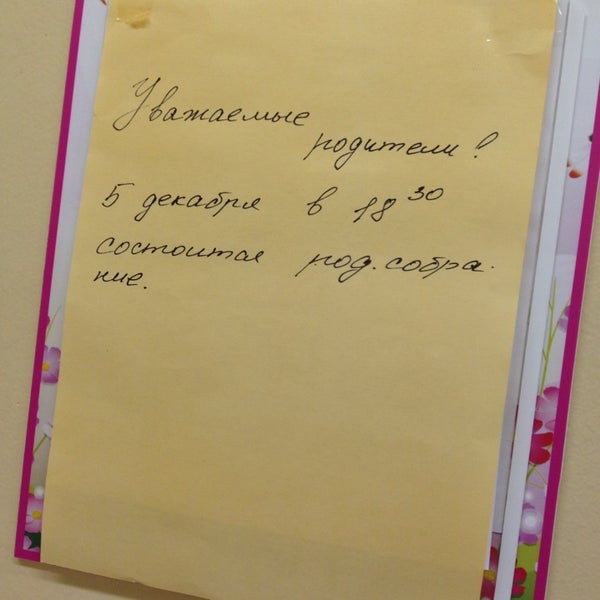 Уважаемые
родители!
5 декабря в 18 30
состоится род. собра-
ние.